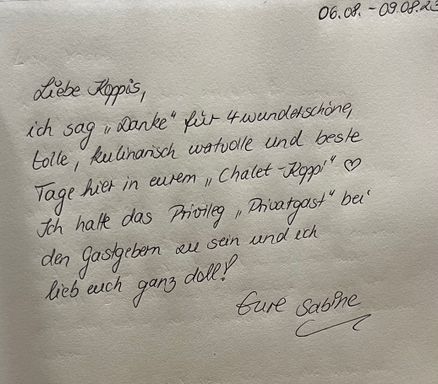 06.08. - 09.08.23
Liebe Koppis,
ich sag „Danke“ für 4 wunderschöne,
tolle, kulinarisch wertvolle und beste
Tage hier in eurem „Chalet-Koppi“ ♡
Ich hatte das Privileg „Privatgast“ bei
den Gastgebern zu sein und ich
lieb euch ganz doll!
Eure Sabine